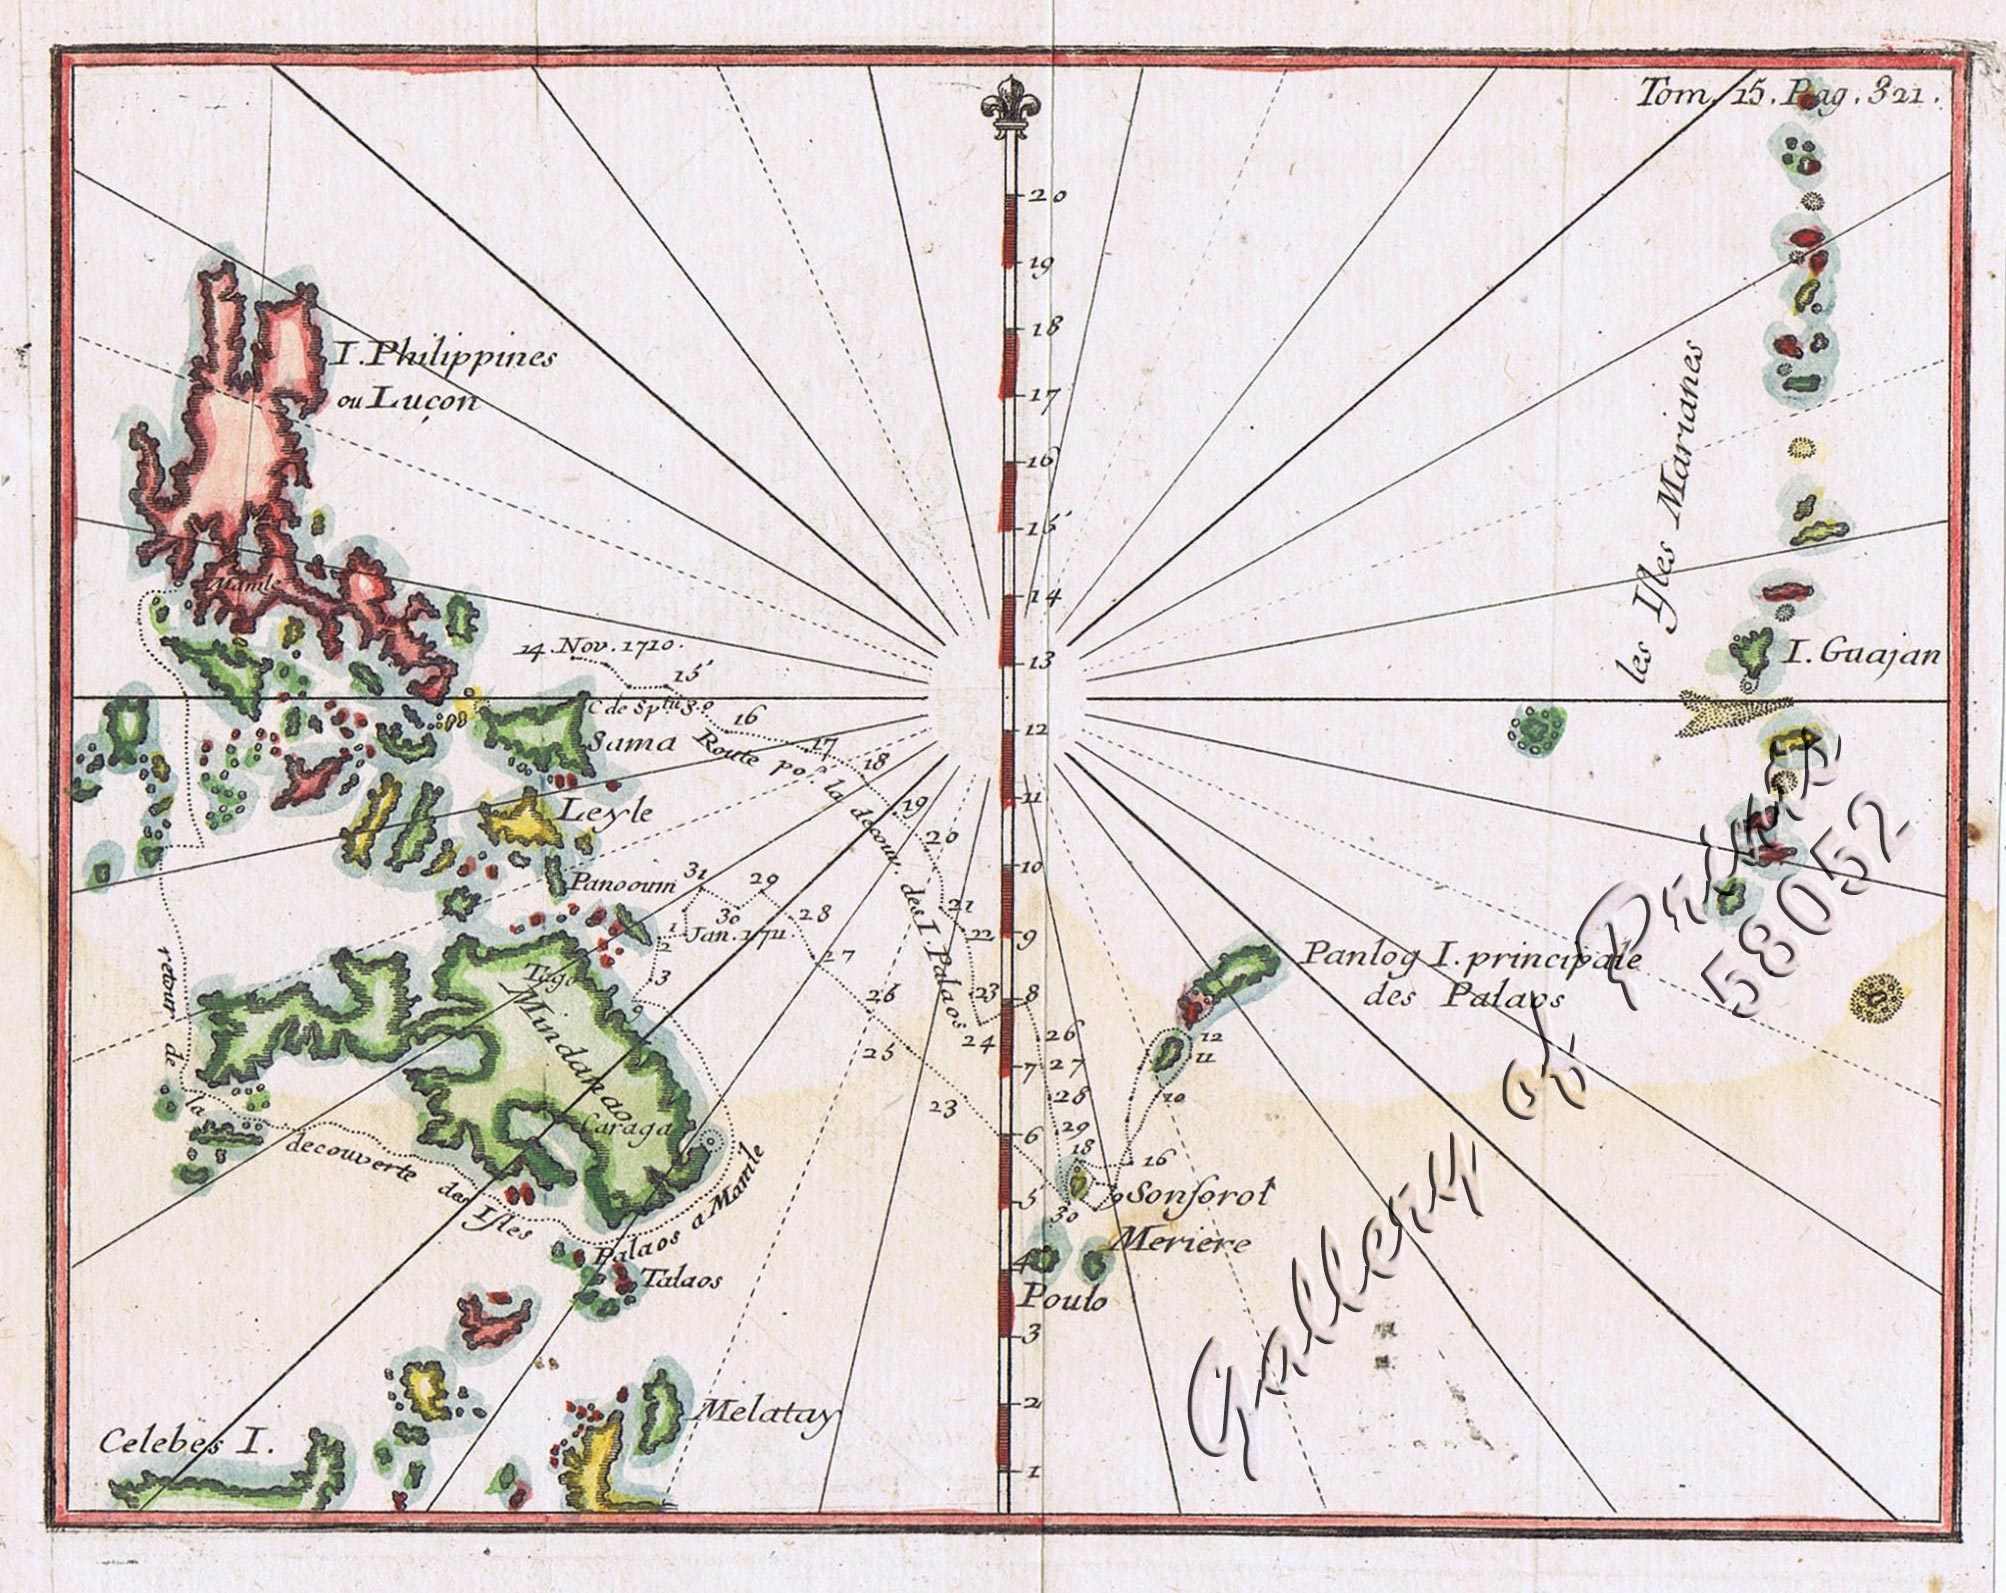 Tom. 15. Pag. 321.
20
19
18
17
16
15
14
13
12
11
10
9
8
7
6
5
4
3
2
1
I. Philippines
ou Luçon
Manile
14. Nov. 1710.
15
16
17
18
19
20
21
22
23
24
C de Sp.tu S.o
Sama
Leyle
Panooum
Route po.r la decouv. des I. Palaos
31
30
29
28
27
26
25
23
Jan. 1711.
1
2
3
9
Tago
Mindanao
Caraga
retour de la decouverte des Isles Palaos a Manile
Talaos
Celebes I.
Melatay
les Isles Marianes
I. Guajan
Panlog I. principale
des Palaos
12
11
10
26
27
28
29
18
16
30
9
Sonsorol
Meriere
Poulo
Gallery of Prints
58052